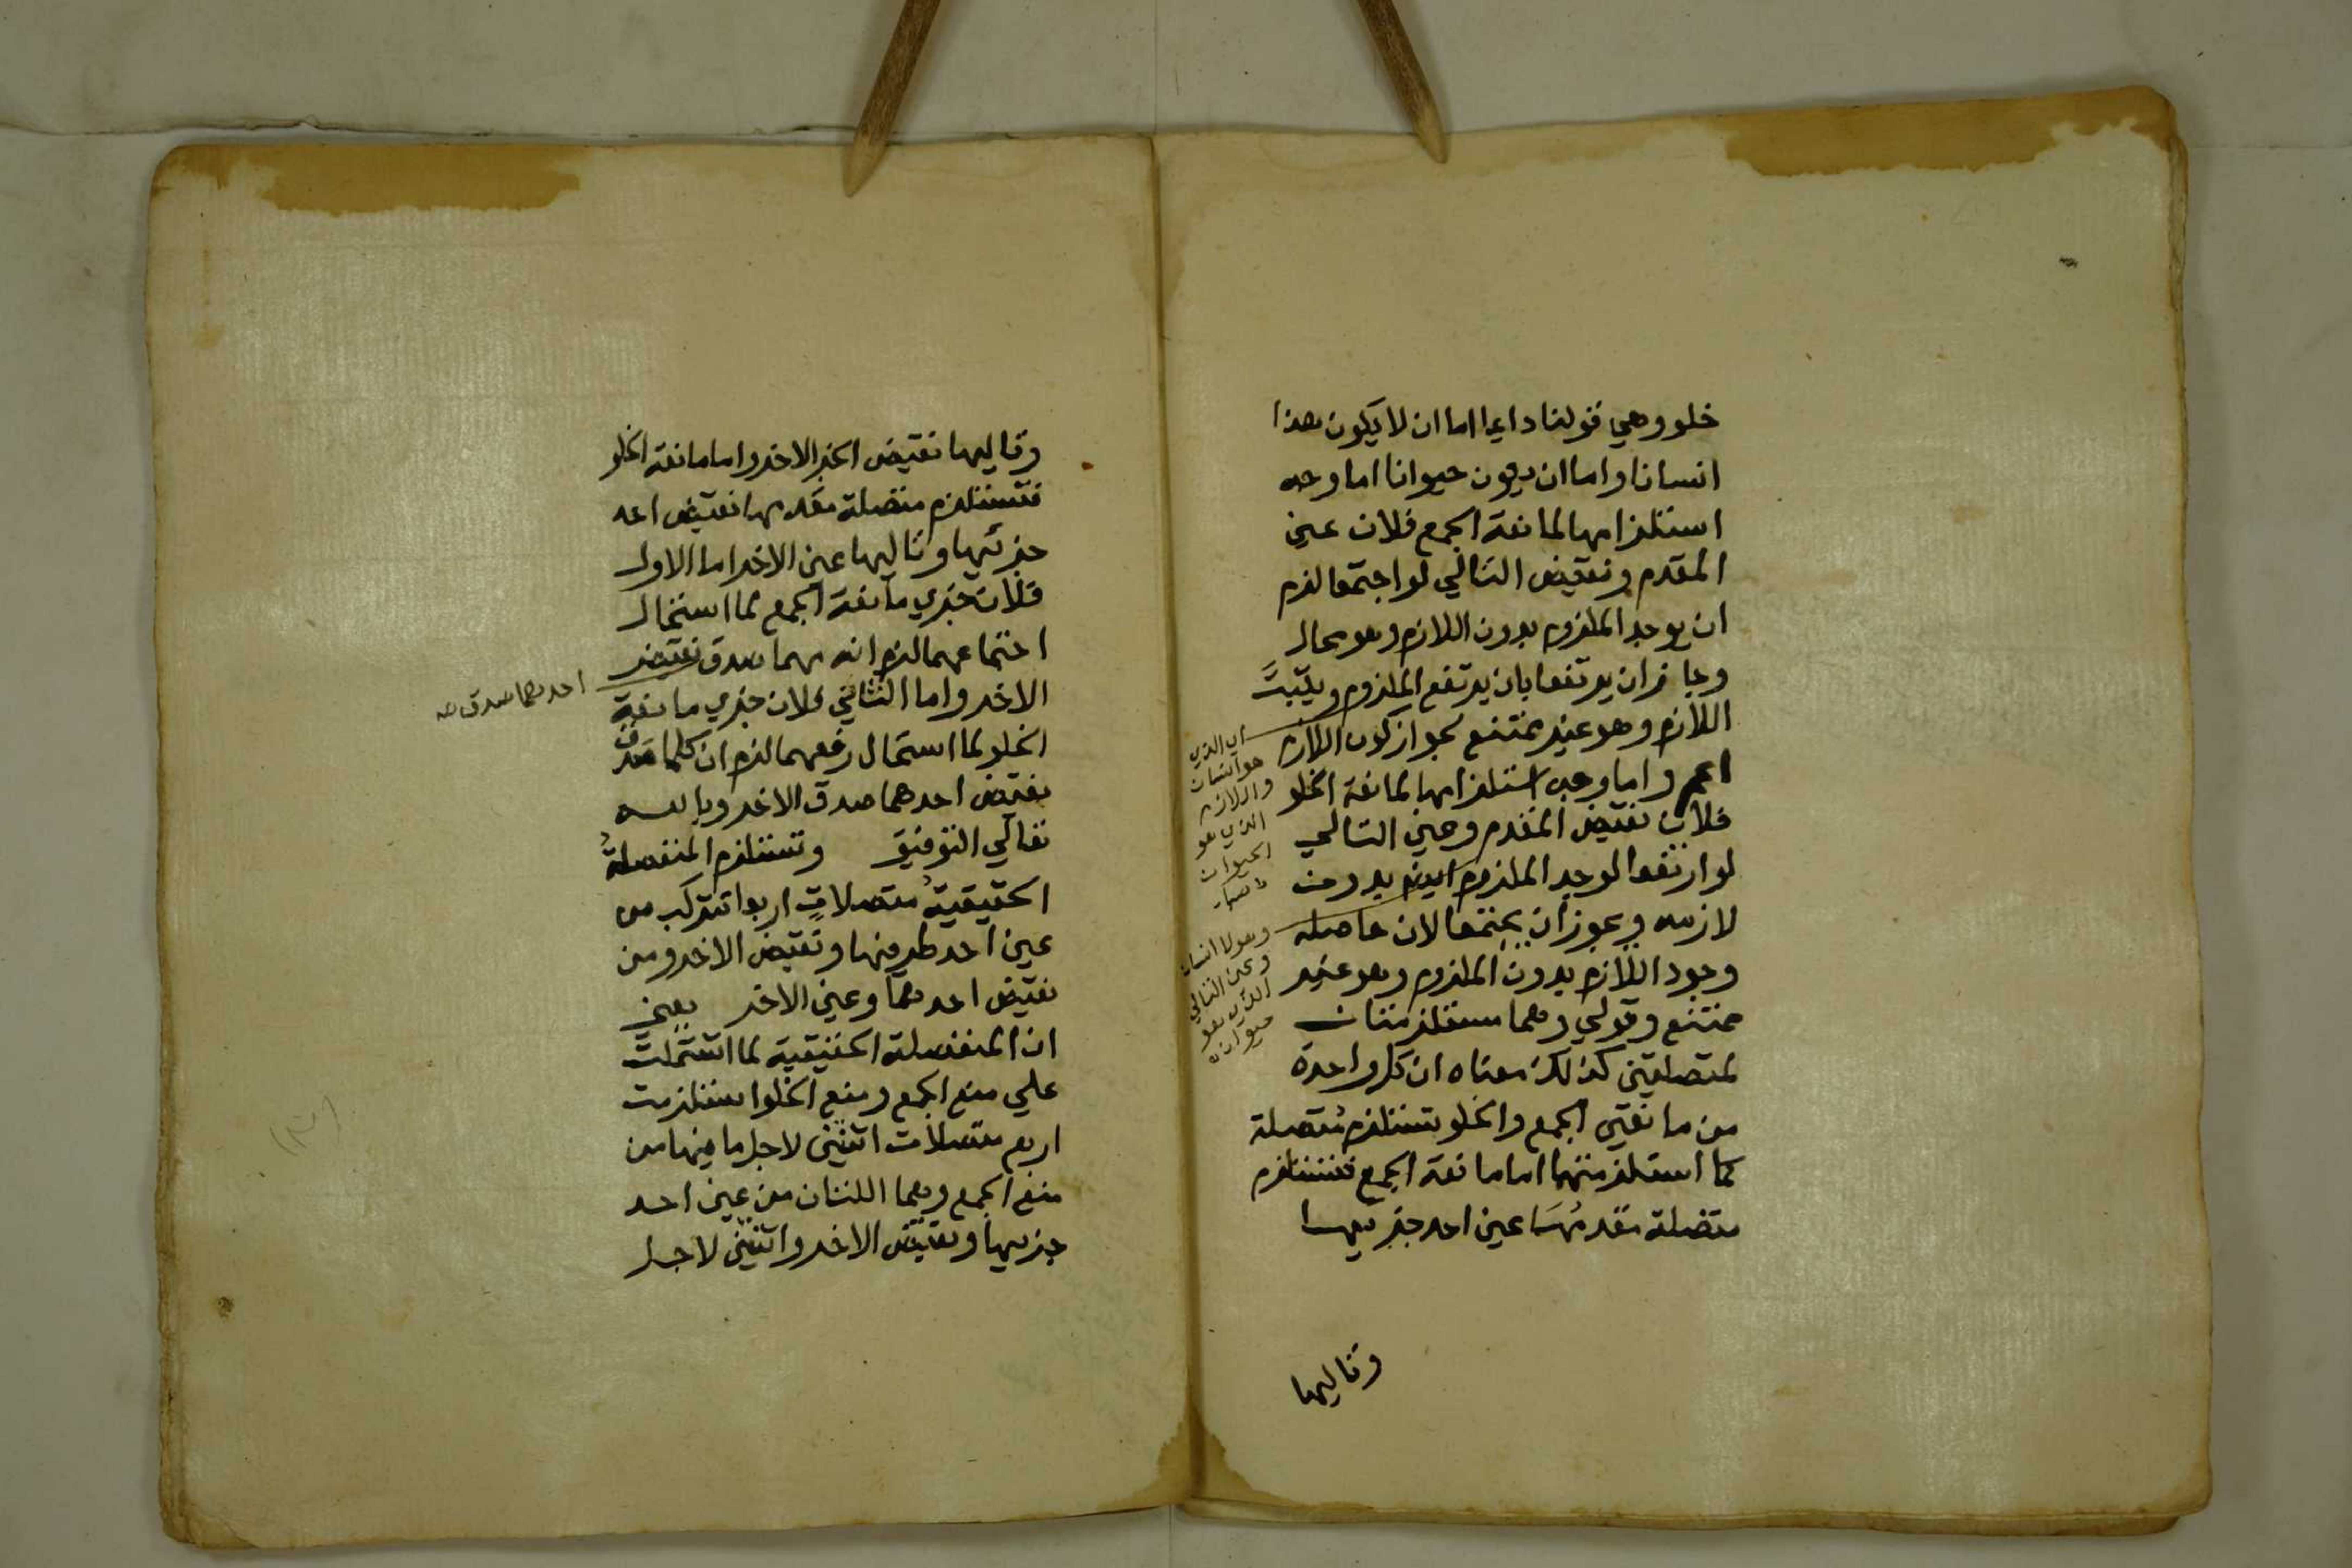 خلو وهي قولنا دايما اما ان لا يكون هذا
انسانا واما ان يكون حيوانا اما وجه
استلزامها لمانعة الجمع فلان عين
المقدم ونقيض التالي لو اجتمعا لزم
ان يوجد الملزوم بدون اللازم وهو محال
وجاز ان يرتفعا بان يرتفع الملزوم ويثبت
اللازم وهو غير ممتنع لجواز كون اللازم
اعم واما وجه استلزامها لمانعة الخلو
فلان نقيض المقدم وعين التالي
لو ارتفعا لوجد الملزوم بدون
لازمه ويجوز ان يجتمعا لان حاصله
وجود اللازم بدون الملزوم وهو غير
ممتنع وقولي وهما مستلزمتان
لمتصلتين كذلك معناه ان كل واحدة
من مانعتي الجمع والخلو تستلزم متصلة
كما استلزمتهما اما مانعة الجمع فتستلزم
متصلة مقدمها عين احد جزءيها
اي الذي
هو انسان
واللازم
الذي هو
الحيوان
وهو لا انسان
وعين التالي
الذي هو
حيوان
وتاليها
وتاليها نقيض الجزء الاخر واما مانعة الخلو
فتستلزم متصلة مقدمها نقيض احد
جزئيها وتاليها عين الاخر اما الاول
فلان جزءي مانعة الجمع لما استحال
اجتماعهما لزم انه مهما صدق نقيض
الاخر واما الثاني فلان جزءي مانعة
الخلو لما استحال رفعهما لزم ان كلما صدق
نقيض احدهما صدق الاخر وبالله
تعالي التوفيق وتستلزم المنفصلة
الحقيقية متصلات اربعا تتركب من
عين احد طرفيها ونقيض الاخر ومن
نقيض احدهما وعين الاخر يعني
ان المنفصلة الحقيقية لما اشتملت
علي منع الجمع ومنع الخلو استلزمت
اربع متصلات اثنين لاجل ما فيها من
منع الجمع وهما اللتان من عين احد
جزءيها ونقيض الاخر واثنين لاجل
احدهما صدق صه